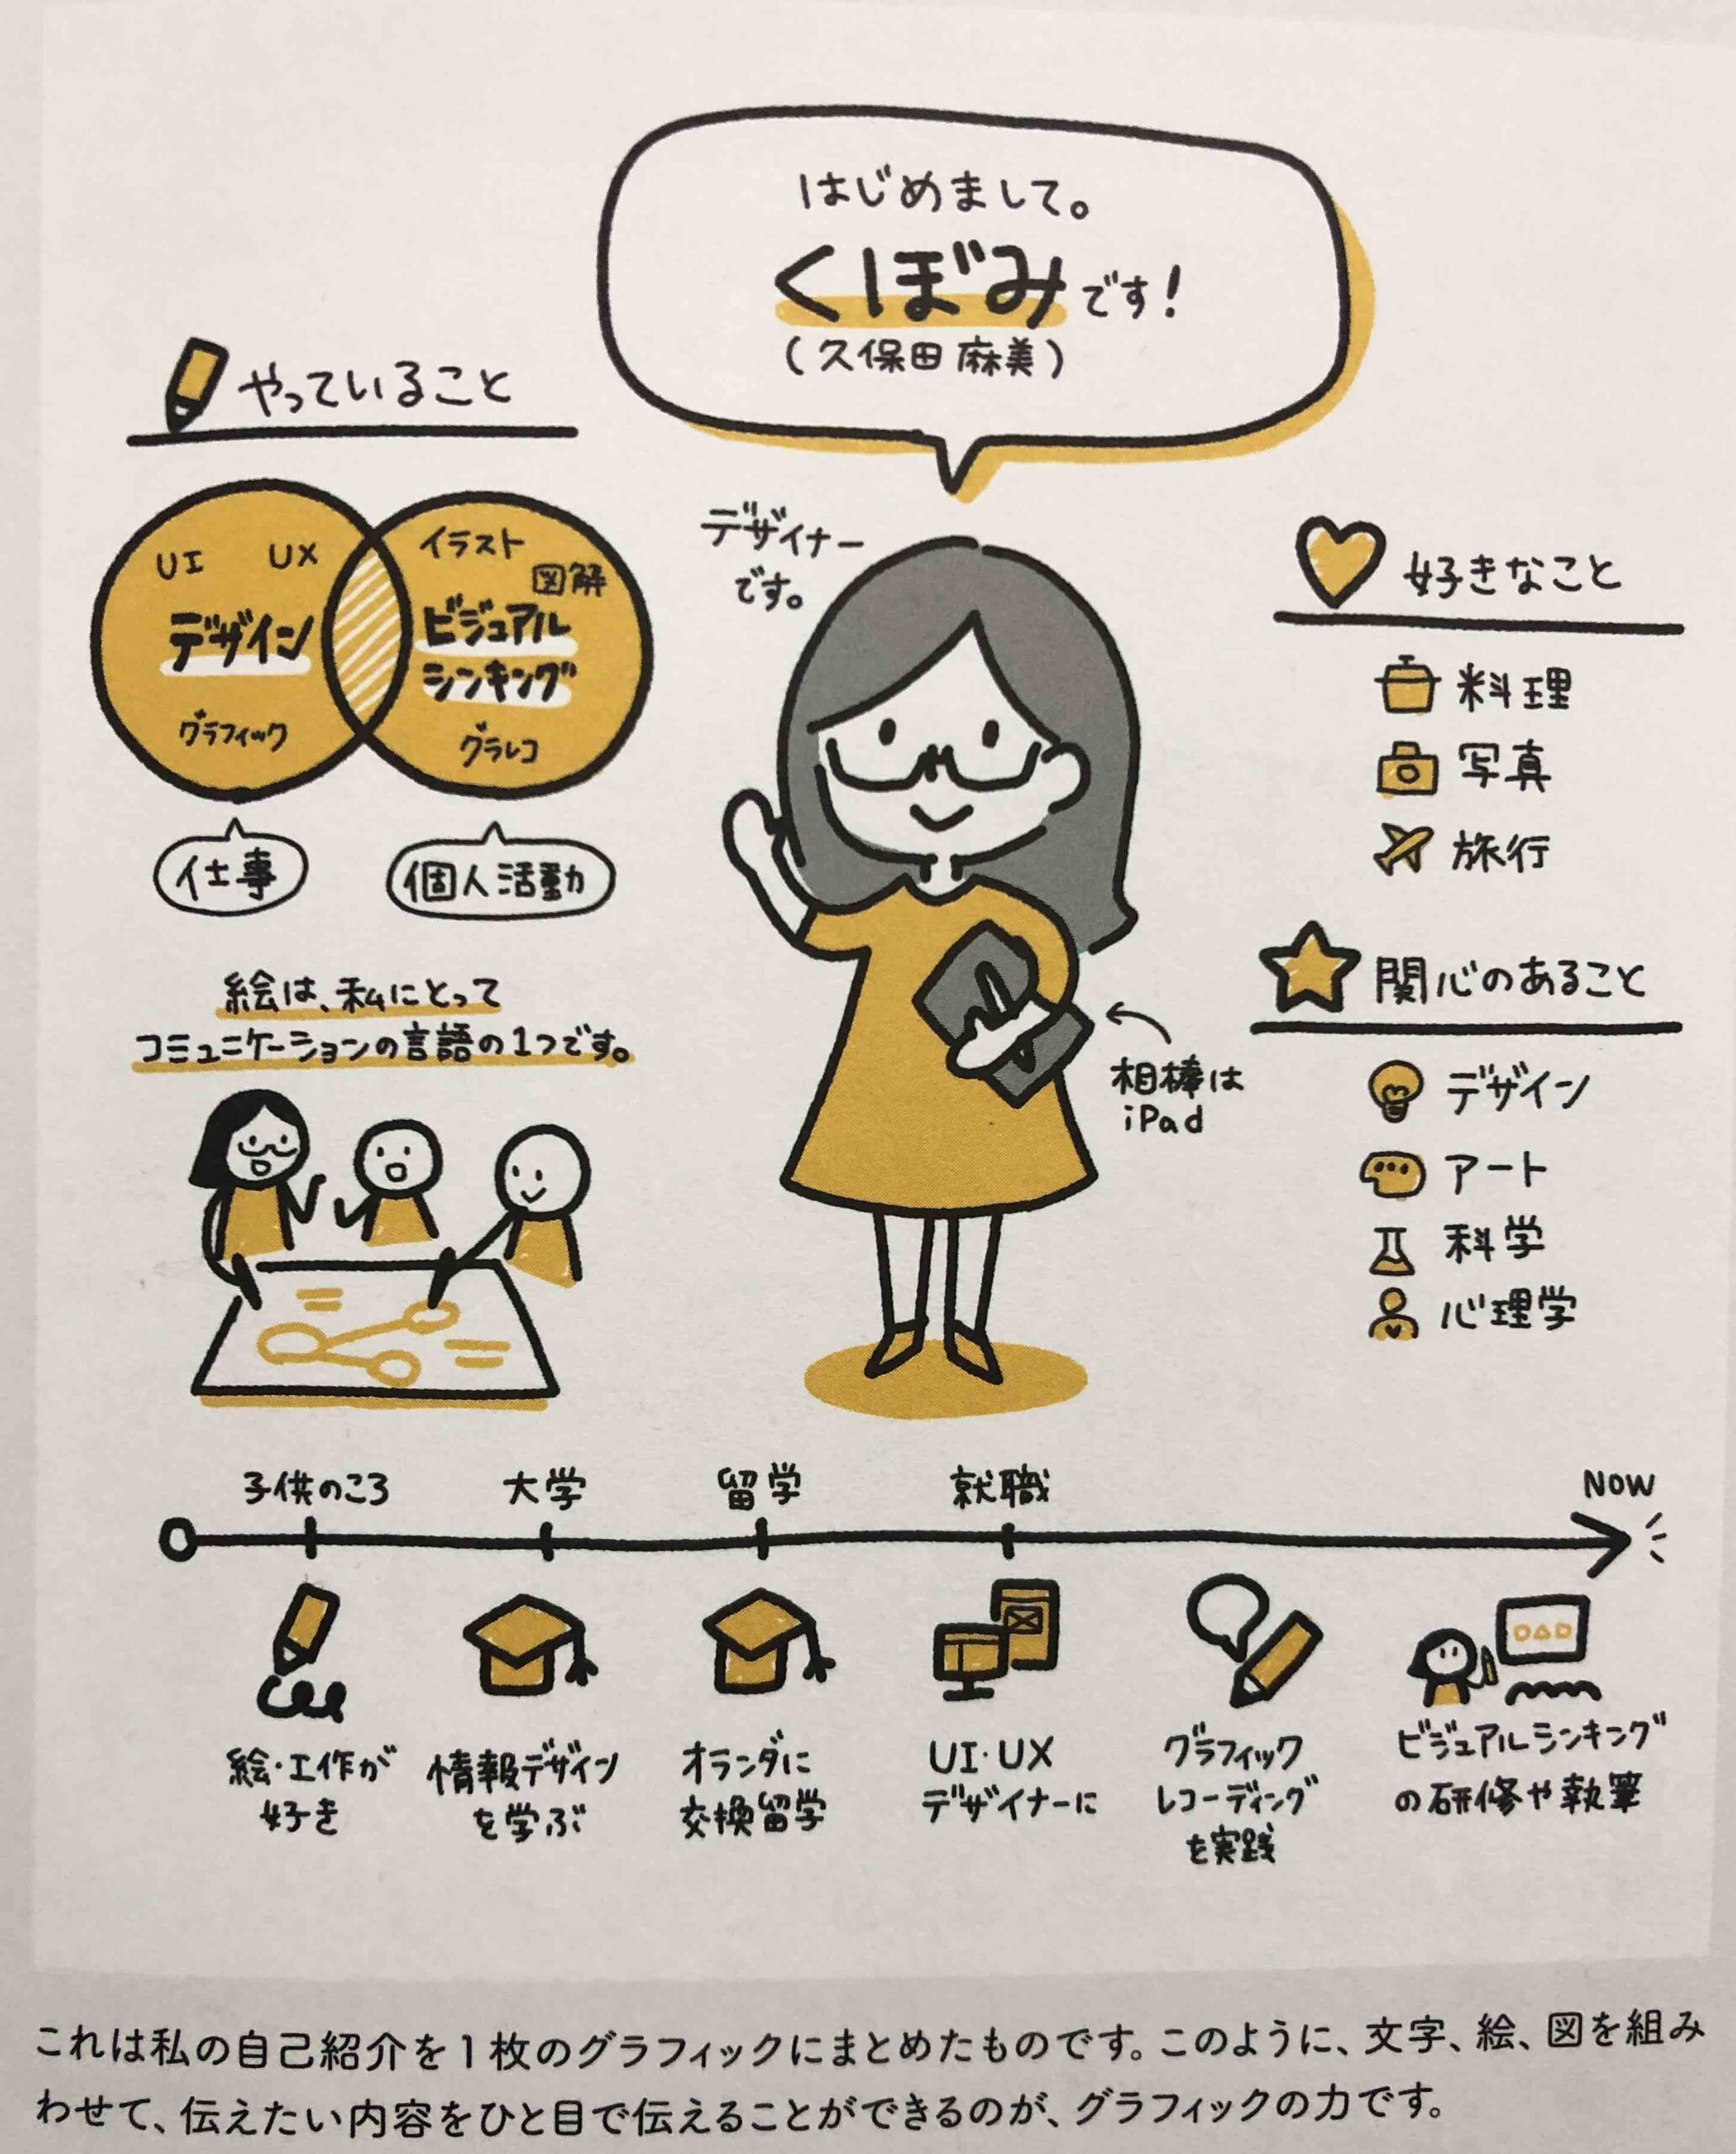 はじめまして。
くぼみです！
(久保田 麻美)
やっていること
UI UX
デザイン
グラフィック
イラスト
図解
ビジュアル
シンキング
グラレコ
仕事
個人活動
絵は、私にとって
コミュニケーションの言語の1つです。
デザイナー
です。
相棒は
iPad
好きなこと
料理
写真
旅行
関心のあること
デザイン
アート
科学
心理学
子供のころ
大学
留学
就職
NOW
絵・工作が
好き
情報デザイン
を学ぶ
オランダに
交換留学
UI・UX
デザイナーに
グラフィック
レコーディング
を実践
ビジュアルシンキング
の研修や執筆
これは私の自己紹介を1枚のグラフィックにまとめたものです。このように、文字、絵、図を組み
わせて、伝えたい内容をひと目で伝えることができるのが、グラフィックの力です。